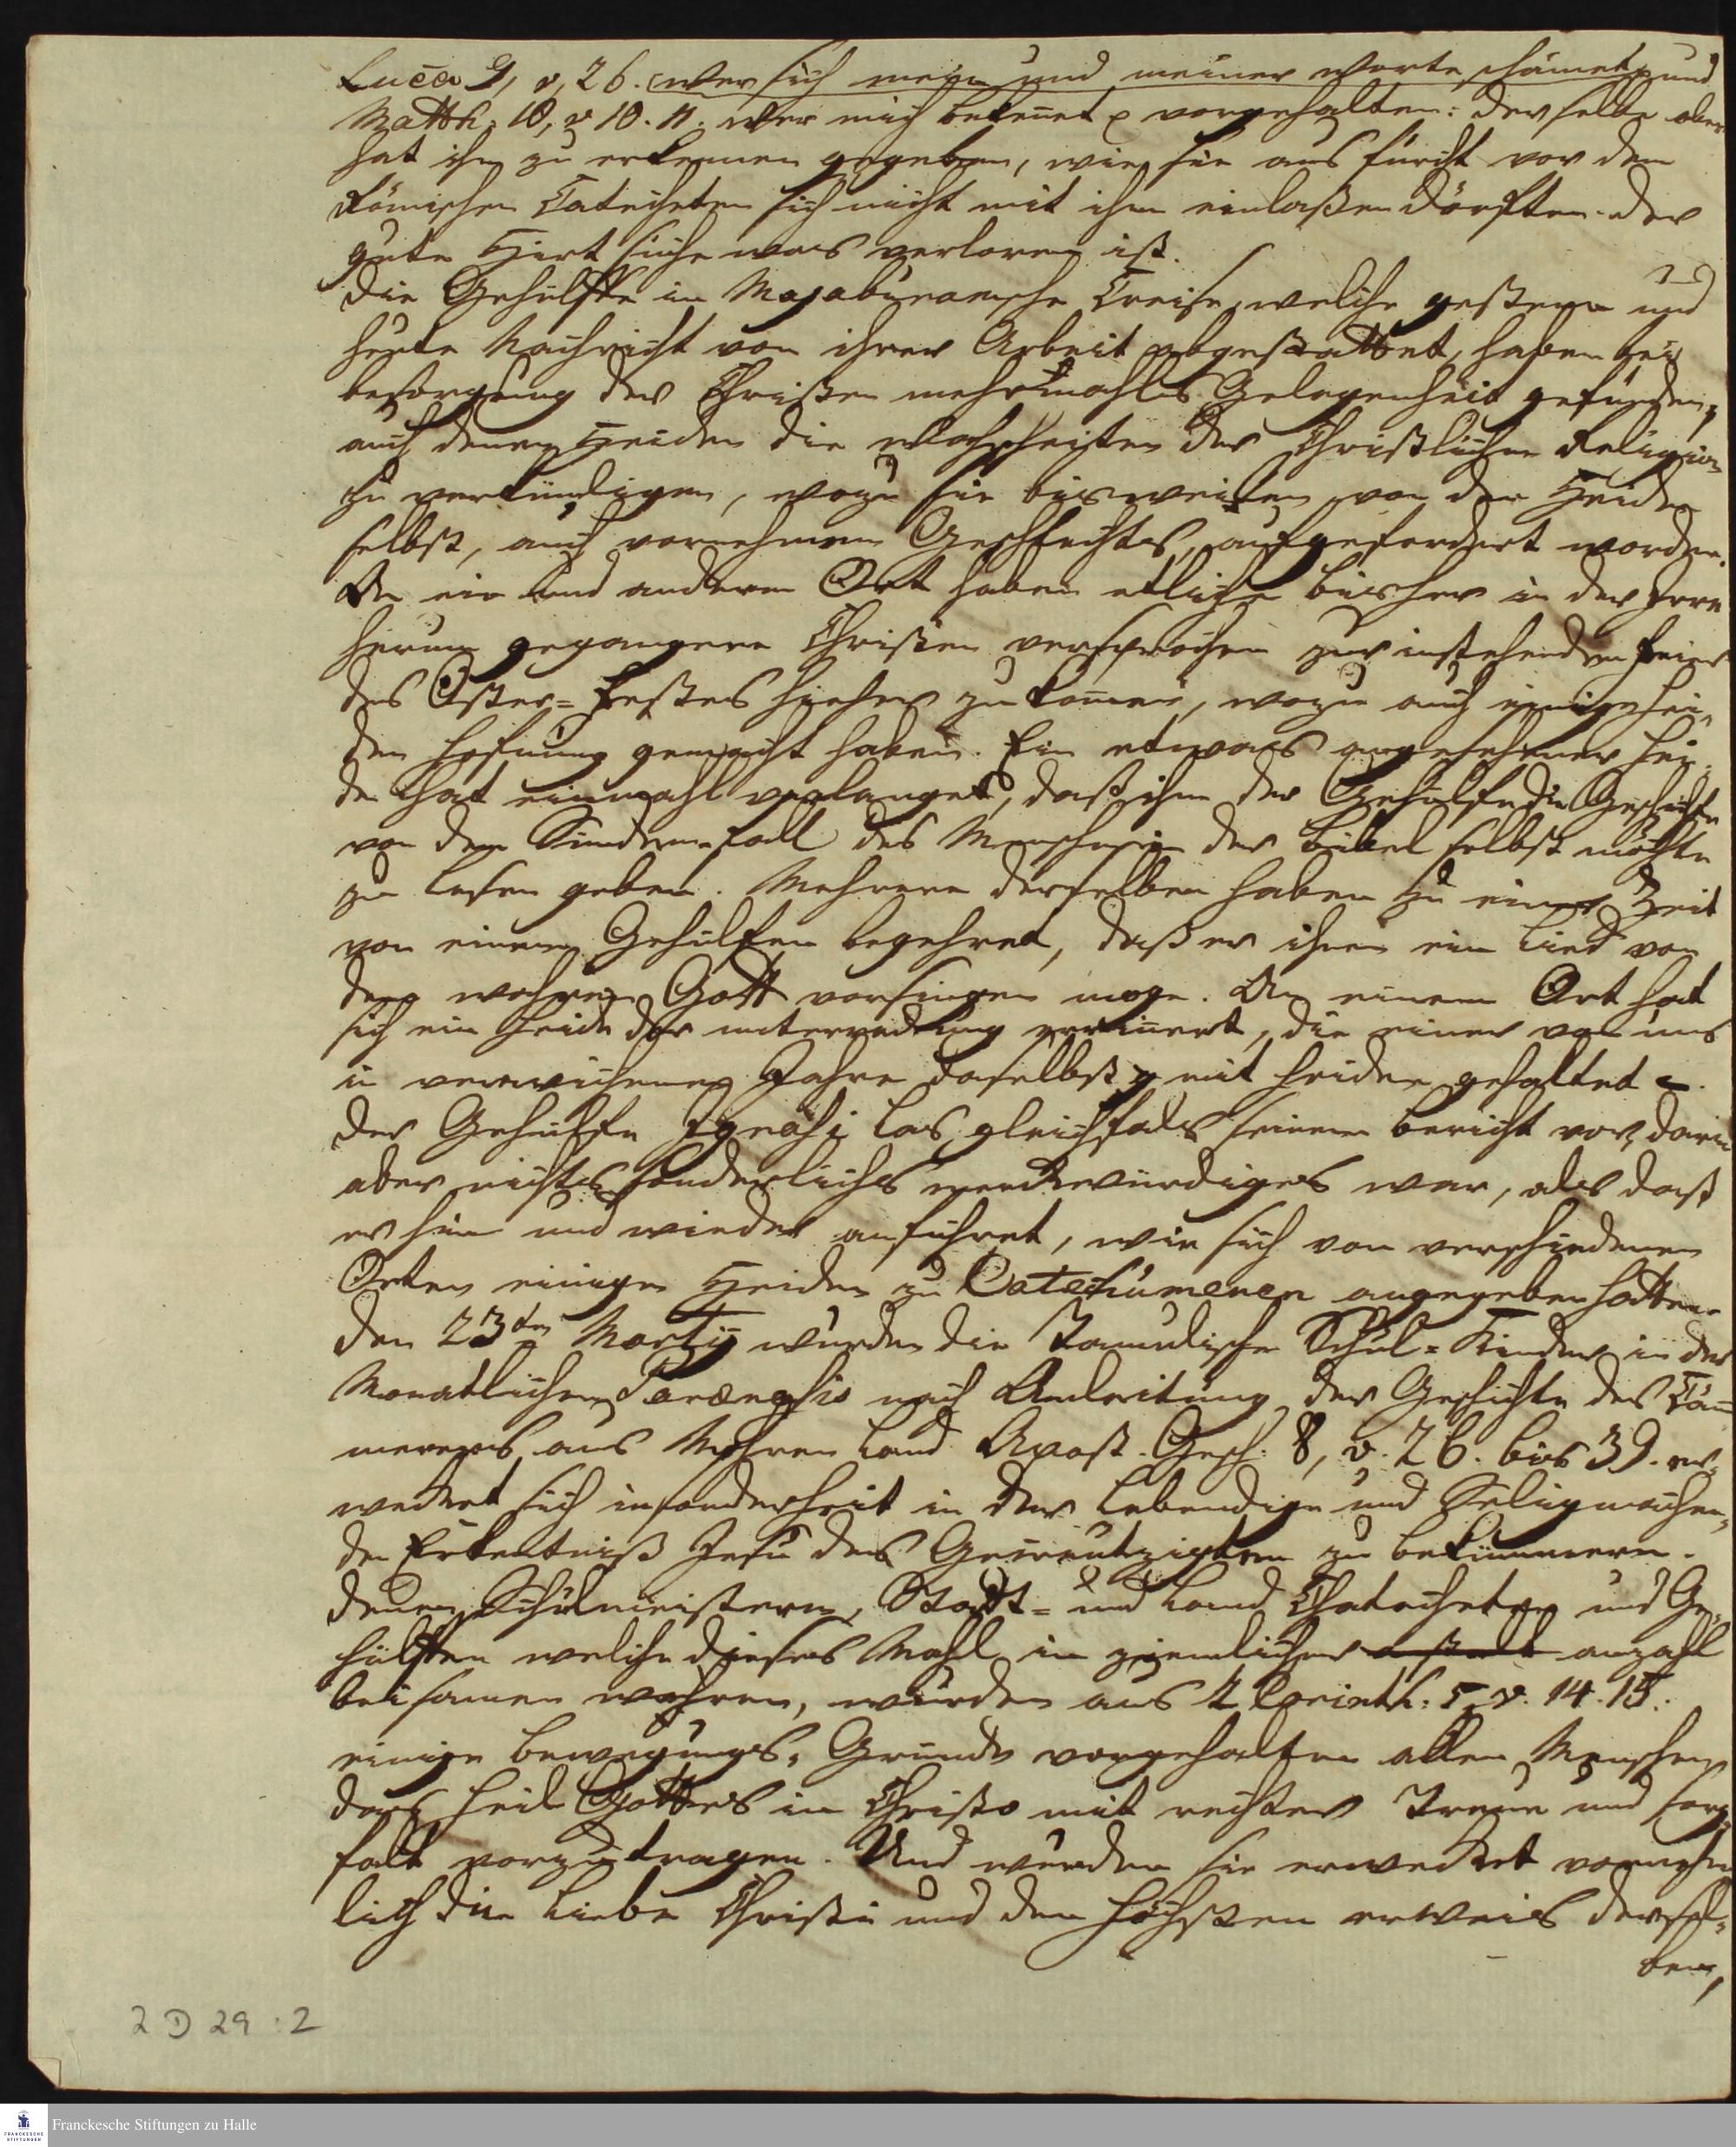 Lucä 9, v. 26. wer sich mein und meiner Worte schämet p und
Matth. 10, v 10. 11. wer mich bekennet p vorgehalten: derselbe aber
hat ihm zu erkennen gegeben, wie sie aus furcht vor dem
Römischen Catecheten sich nicht mit ihm einlaßen dörften. der
gute Hirt suche was verloren ist.
Die Gehülffen im Majaburamsche Creise, welche gestern und
heute Nachricht von ihrer Arbeit abgestattet, haben bei
besorgung der Christen mehrmahls Gelegenheit gefunden,
auch denen Heiden die Wahrheiten der Christlichen Religion
zu verkündigen, wozu sie bisweilen von den Heiden
selbst, auch vornehmen Geschlechts, aufgefordert worden.
An ein und anderen Ort haben etliche bisher in der Irre
herum gegangene Christen versprochen zur instehenden Feier
des Oster=Festes hieher zu komen, wozu auch einige Hei-
den Hofnung gemacht haben. Ein etwas angesehener Hei-
de hat einmahl verlanget, daß ihm der Gehülfe die Geschichte
von dem Sünden-fall des Menschen in der Bibel selbst möchte
zu lesen geben. Mehrere derselben haben zu einer Zeit
von einem Gehülfen begehret, daß er ihnen ein Lied von
dem wahren Gott vorsingen möge. An einem Ort hat
sich ein Heide der unterredung erinnert, die einer von uns
in verwichenen Jahre daselbst mit Heiden gehaltet.
Der Gehülfe las gleichfals seinen bericht vor, darin
aber nichts sonderliches merckwürdiges war, als daß
er hin und wieder anführet, wie sich von verschiedenen
Orten einige Heiden zu Catechumenen angegeben hatten.
Den 23ten Martij wurden die Tamulische Schul=Kinder in der
Monatlichen Parænesis nach Anleitung der Geschichte des Cäm-
merers aus Mohren Land Apost. Gesch: 8, v. 26. bis 39. er-
wecket sich insonderheit in der Lebendigen und Seeligmachen-
den Erkentniß Jesu des Gecreutzigten zu bekümmern.
Denen Schulmeistern, Stadt= und Land Chatecheten und Ge-
hülffen welche dieses Mahl in ziemlicher anzahl
beisamen wahren, wurden aus 2 Corinth: 5, v. 14. 15.
einige bewegungs-Gründe vorgehalten allen Menschen
das Heil Gottes in Christo mit rechter Treue und sorg-
falt vorzutragen. Und wurden sie erwecket vornehm-
lich die Liebe Christi und den höchsten erweis dersel-
ben,
2 D 29 : 2
Franckesche Stiftungen zu Halle
FRANCKESCHE
STIFTUNGEN